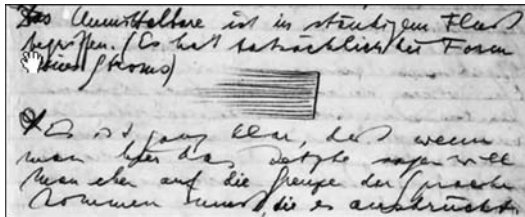 Das Unmittelbare ist in ständigem Fluß
begriffen. (Es hat tatsächlich die Form
eines Stroms)
Es ist ganz klar, daß wenn
man hier das Letzte sagen will
man eben auf die Grenze der Sprache
kommen muß die es ausdrückt